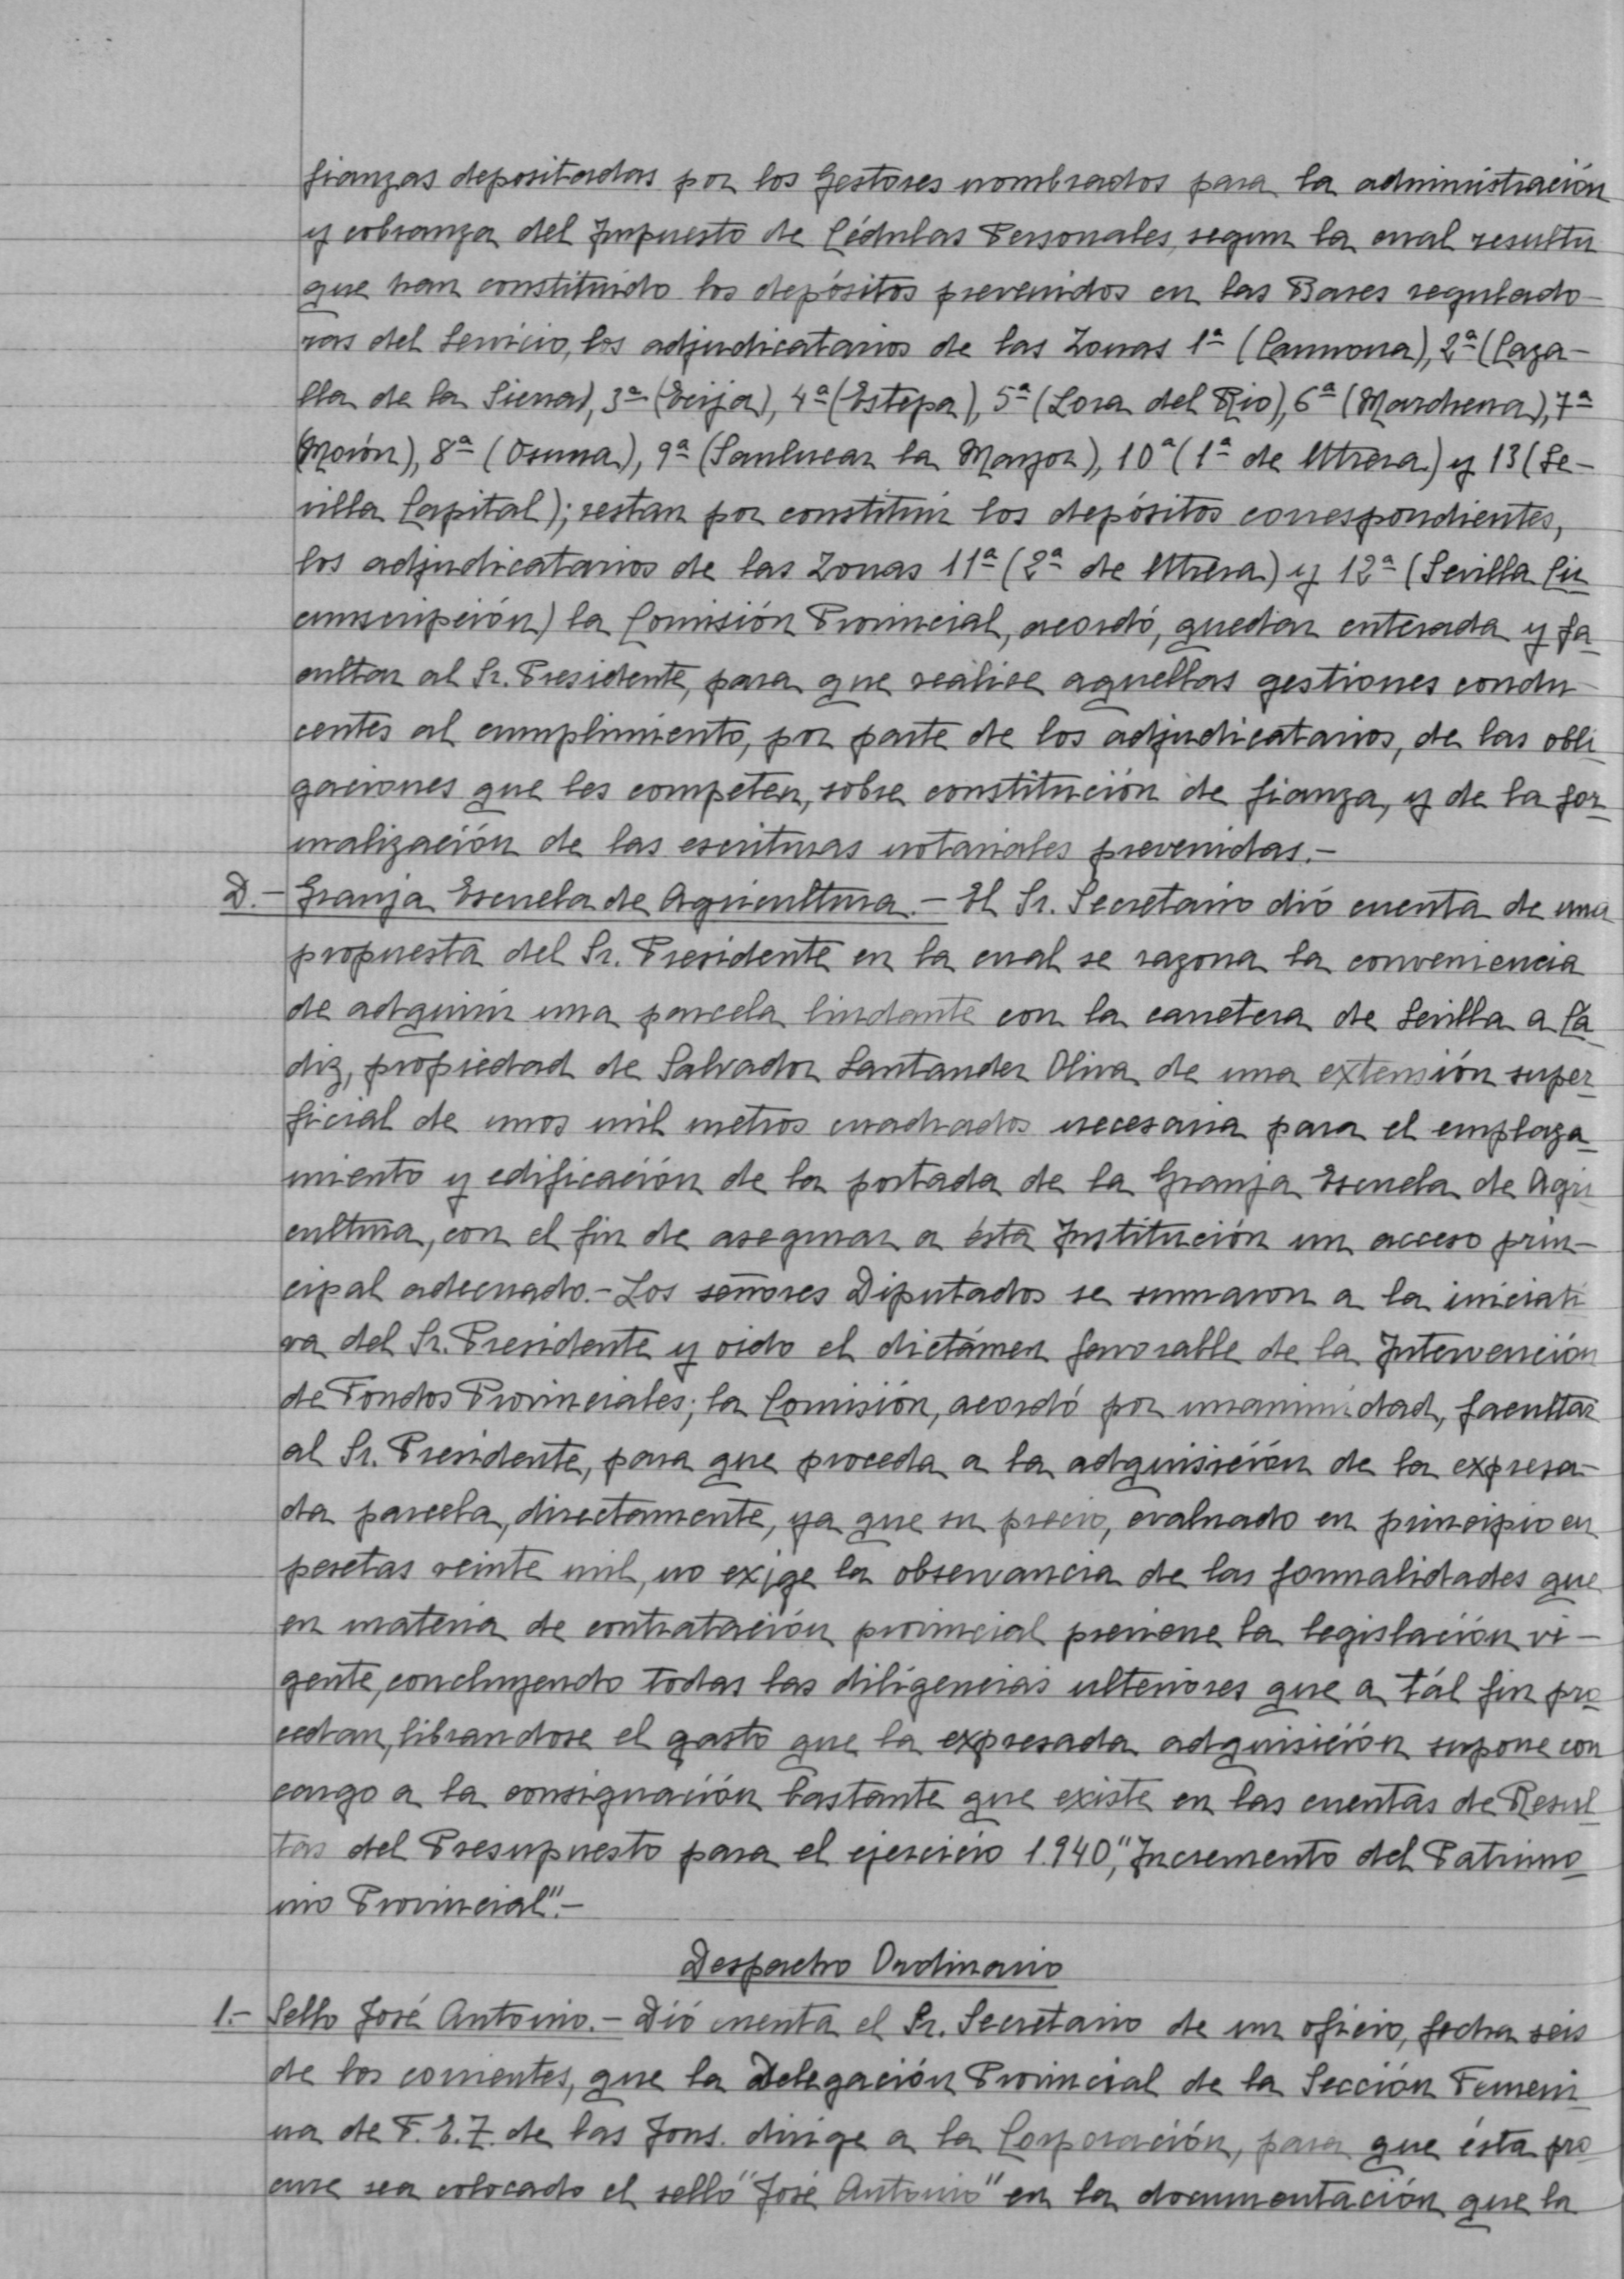 fianzas depositadas por los Gestores nombrados para la administración
y cobranza del Impuesto de Cédulas Personales, segun la cual resulta
que han constituido los depósitos prevenidos en las Bases regulado-
ras del Servicio, los adjudicatarios de las Zonas 1ª (Carmona), 2ª (Caza-
lla de la Sierra), 3ª (Ecija), 4ª (Estepa), 5ª (Lora del Rio), 6ª (Marchena), 7ª
(Morón), 8ª (Osuna), 9ª (Sanlucar la Mayor), 10ª (1ª de Utrera) y 13 (Se-
villa Capital); restan por constituir los depósitos correspondientes,
los adjudicatarios de las Zonas 11ª (2ª de Utrera) y 12ª (Sevilla Cir
cunscripción) la Comisión Provincial, acordó, quedar enterada y fa
cultar al Sr. Presidente, para que realice aquellas gestiones condu
centes al cumplimiento, por parte de los adjudicatarios, de las obli
gaciones que les competen, sobre constitución de fianza, y de la for
malización de las escrituras notariales prevenidas.-
D.- Granja Escuela de Agricultura.- El Sr. Secretario dió cuenta de una
propuesta del Sr. Presidente en la cual se razona la conveniencia
de adquirir una parcela lindante con la carretera de Sevilla a Cá
diz, propiedad de Salvador Santander Oliva de una extensión super
ficial de unos mil metros cuadrados necesaria para el emplaza
miento y edificación de la portada de la Granja Escuela de Agri
cultura, con el fin de asegurar a ésta Institución un acceso prin-
cipal adecuado.- Los señores Diputados se sumaron a la iniciati
va del Sr. Presidente y oido el dictámen favorable de la Intervención
de Fondos Provinciales; la Comisión, acordó por unanimidad, facultar
al Sr. Presidente, para que proceda a la adquisición de la expresa-
da parcela, directamente, ya que su precio, evaluado en principio en
pesetas veinte mil, no exige la observancia de las formalidades que
en materia de contratación provincial previene la legislación vi-
gente, concluyendo todas las diligencias ulteriores que a tál fin pro
cedan, librandose el gasto que la expresada adquisición supone con
cargo a la consignación bastante que existe en las cuentas de Resul
tas del Presupuesto para el ejercicio 1.940, "Incremento del Patrimo
nio Provincial".-
Despacho Ordinario
1.- Sello José Antonio.- Dió cuenta el Sr. Secretario de un oficio, fecha seis
de los corrientes, que la Delegación Provincial de la Sección Femeni
na de F.E.T. de las Jons. dirige a la Corporación, para que ésta pro
cure sea colocado el sello "José Antonio" en la documentación que la